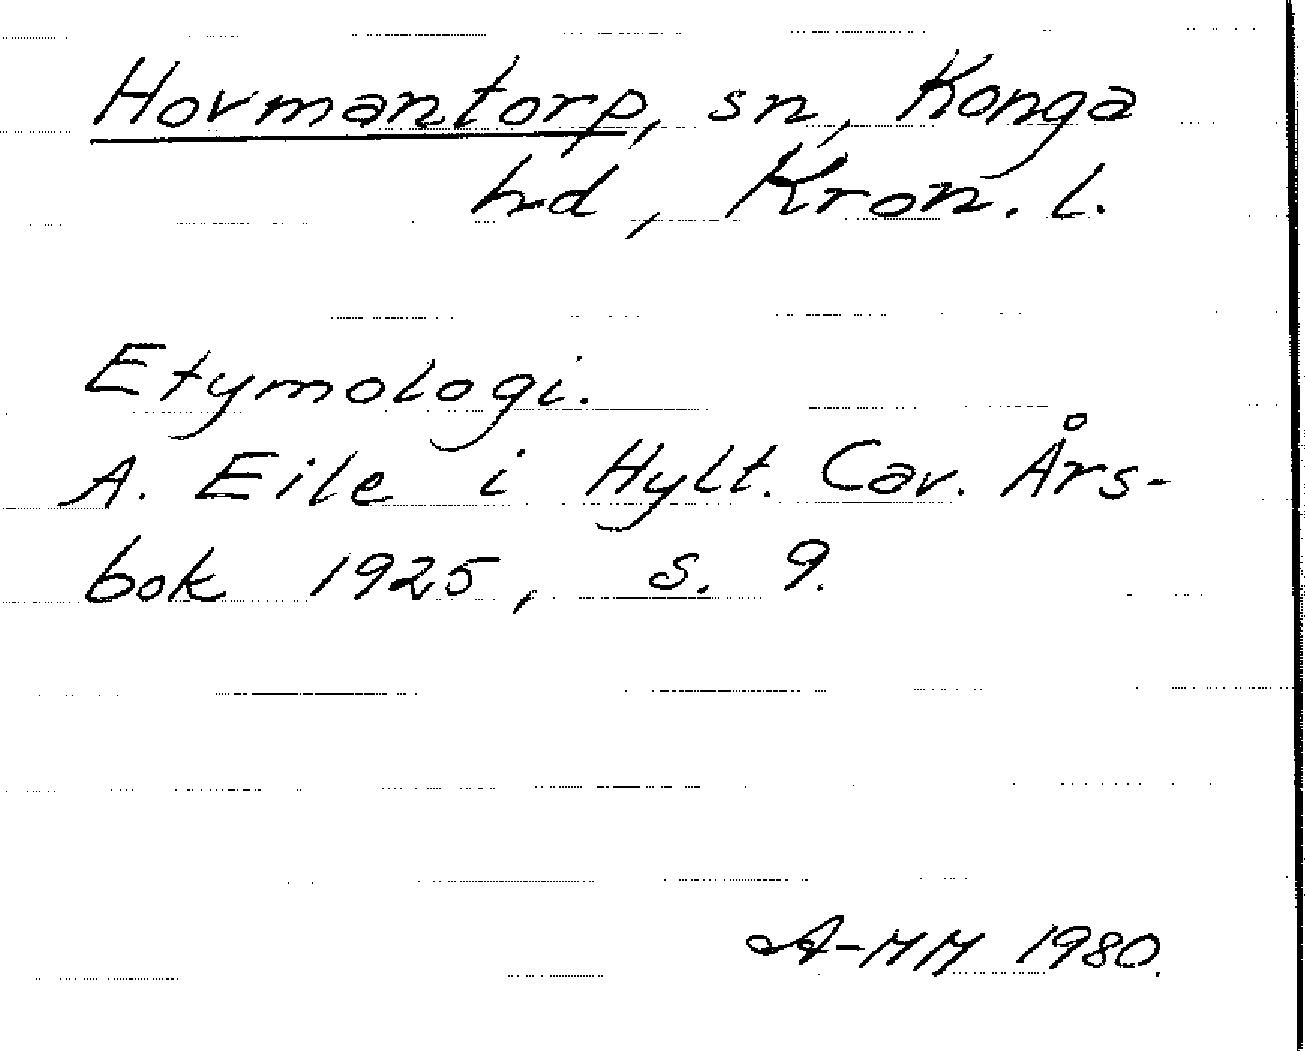 Hovmantorp, sn, Konga
hd, Kron. l.
Etymologi.
A. Eile i Hylt. Cav. Års-
bok 1925, s. 9.
A-MM 1980.